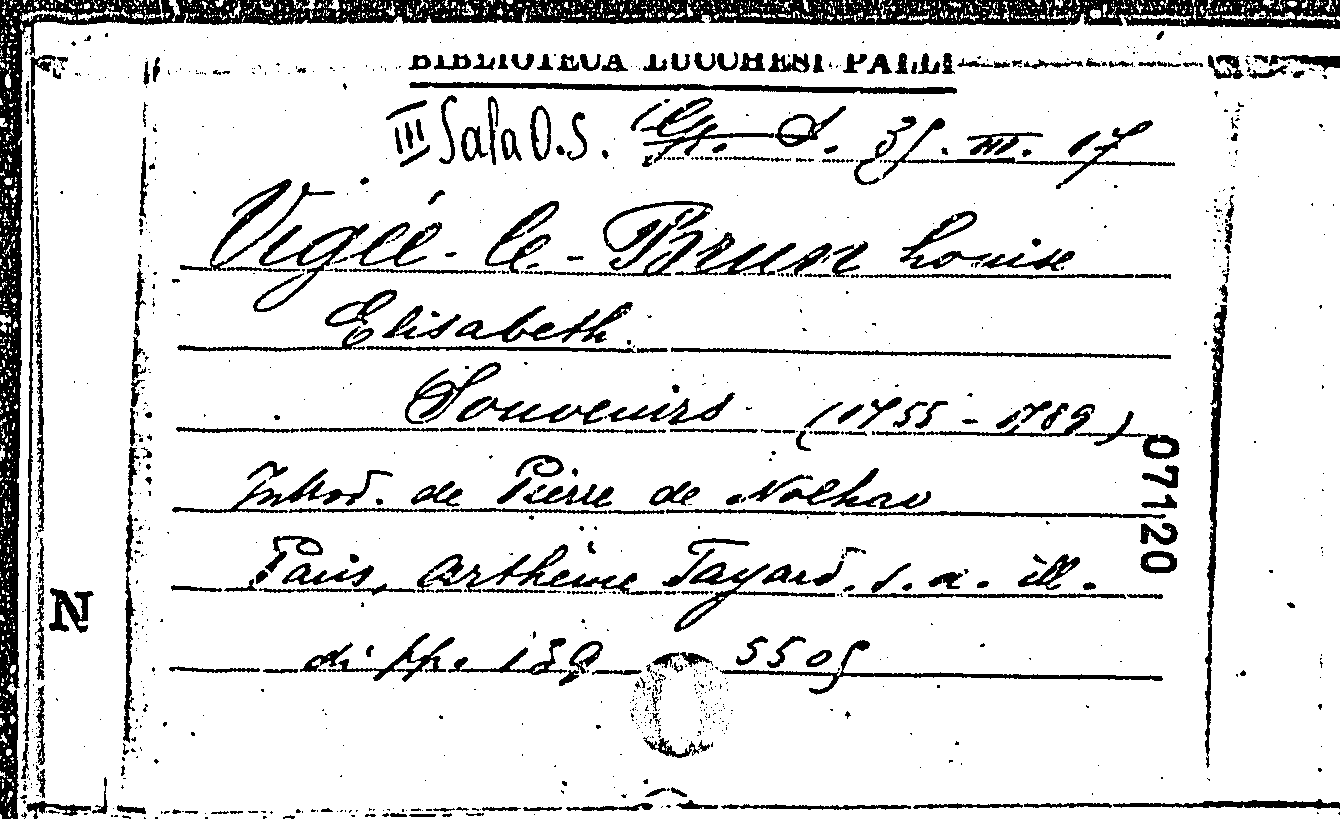 BIBLIOTECA LUCCHESI PALLI
III Sala O.S. Gr. S. 35. III. 17
Vigée-le-Brun Louise
Elisabeth.
Souvenirs (1755-1789)
Introd. de Pierre de Nolhac
Paris, Arthème Fayard. s. a. ill.
di pp. 139 5505
07120
N